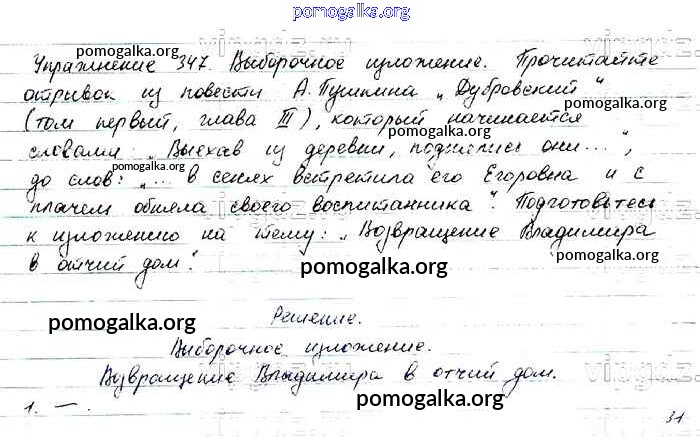 pomogalka.org
Упражнение 347. Выборочное изложение. Прочитайте
pomogalka.org
отрывок из повести А. Пушкина „Дубровский“
pomogalka.org
(том первый, глава III), который начинается
pomogalka.org
словами: „Выехав из деревни, поднялись они...“,
pomogalka.org
до слов: „... в сенях встретила его Егоровна и с
плачем обняла своего воспитанника“. Подготовьтесь
к изложению на тему: „Возвращение Владимира
в отчий дом“.
pomogalka.org
pomogalka.org
Решение.
Выборочное изложение.
Возвращение Владимира в отчий дом.
1. —.
pomogalka.org
31